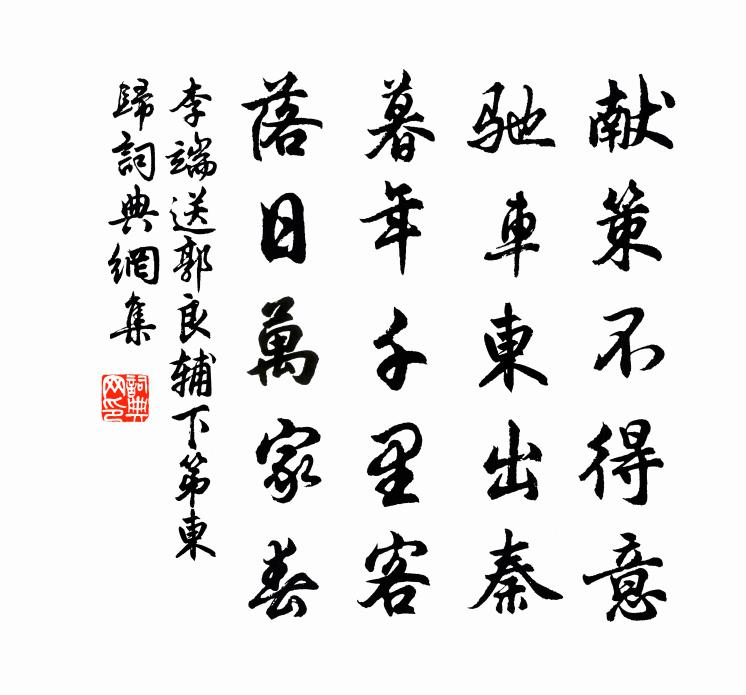 献策不得意
馳車東出秦
暮年千里客
落日萬家春
李端送郭良輔下第東
歸詞典網集
詞典
网印